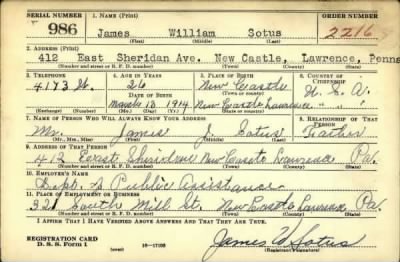 SERIAL NUMBER 1. NAME (Print) ORDER NUMBER
986 James William Sotus 2216
(First) (Middle) (Last)
2. ADDRESS (Print)
412 East Sheridan Ave. New Castle, Lawrence, Penna
(Number and street or R. F. D. number) (Town) (County) (State)
3. TELEPHONE 4. AGE IN YEARS 5. PLACE OF BIRTH 6. COUNTRY OF CITIZENSHIP
4173 26 New Castle U. S. A.
DATE OF BIRTH
March 13 1914 New Castle Lawrence " "
(Exchange) (Number) (Mo.) (Day) (Yr.) (Town) (County) (State)
7. NAME OF PERSON WHO WILL ALWAYS KNOW YOUR ADDRESS 8. RELATIONSHIP OF THAT PERSON
Mr. James J. Sotus Father
(Mr., Mrs., Miss) (First) (Middle) (Last)
9. ADDRESS OF THAT PERSON
412 East Sheridan New Castle Lawrence Pa.
(Number and street or R. F. D. number) (Town) (County) (State)
10. EMPLOYER'S NAME
Dept. of Public Assistance
11. PLACE OF EMPLOYMENT OR BUSINESS
321 South Mill St. New Castle Lawrence Pa.
(Number and street or R. F. D. number) (Town) (County) (State)
I AFFIRM THAT I HAVE VERIFIED ABOVE ANSWERS AND THAT THEY ARE TRUE.
REGISTRATION CARD
D. S. S. Form 1 (over) 16-17105 James W Sotus